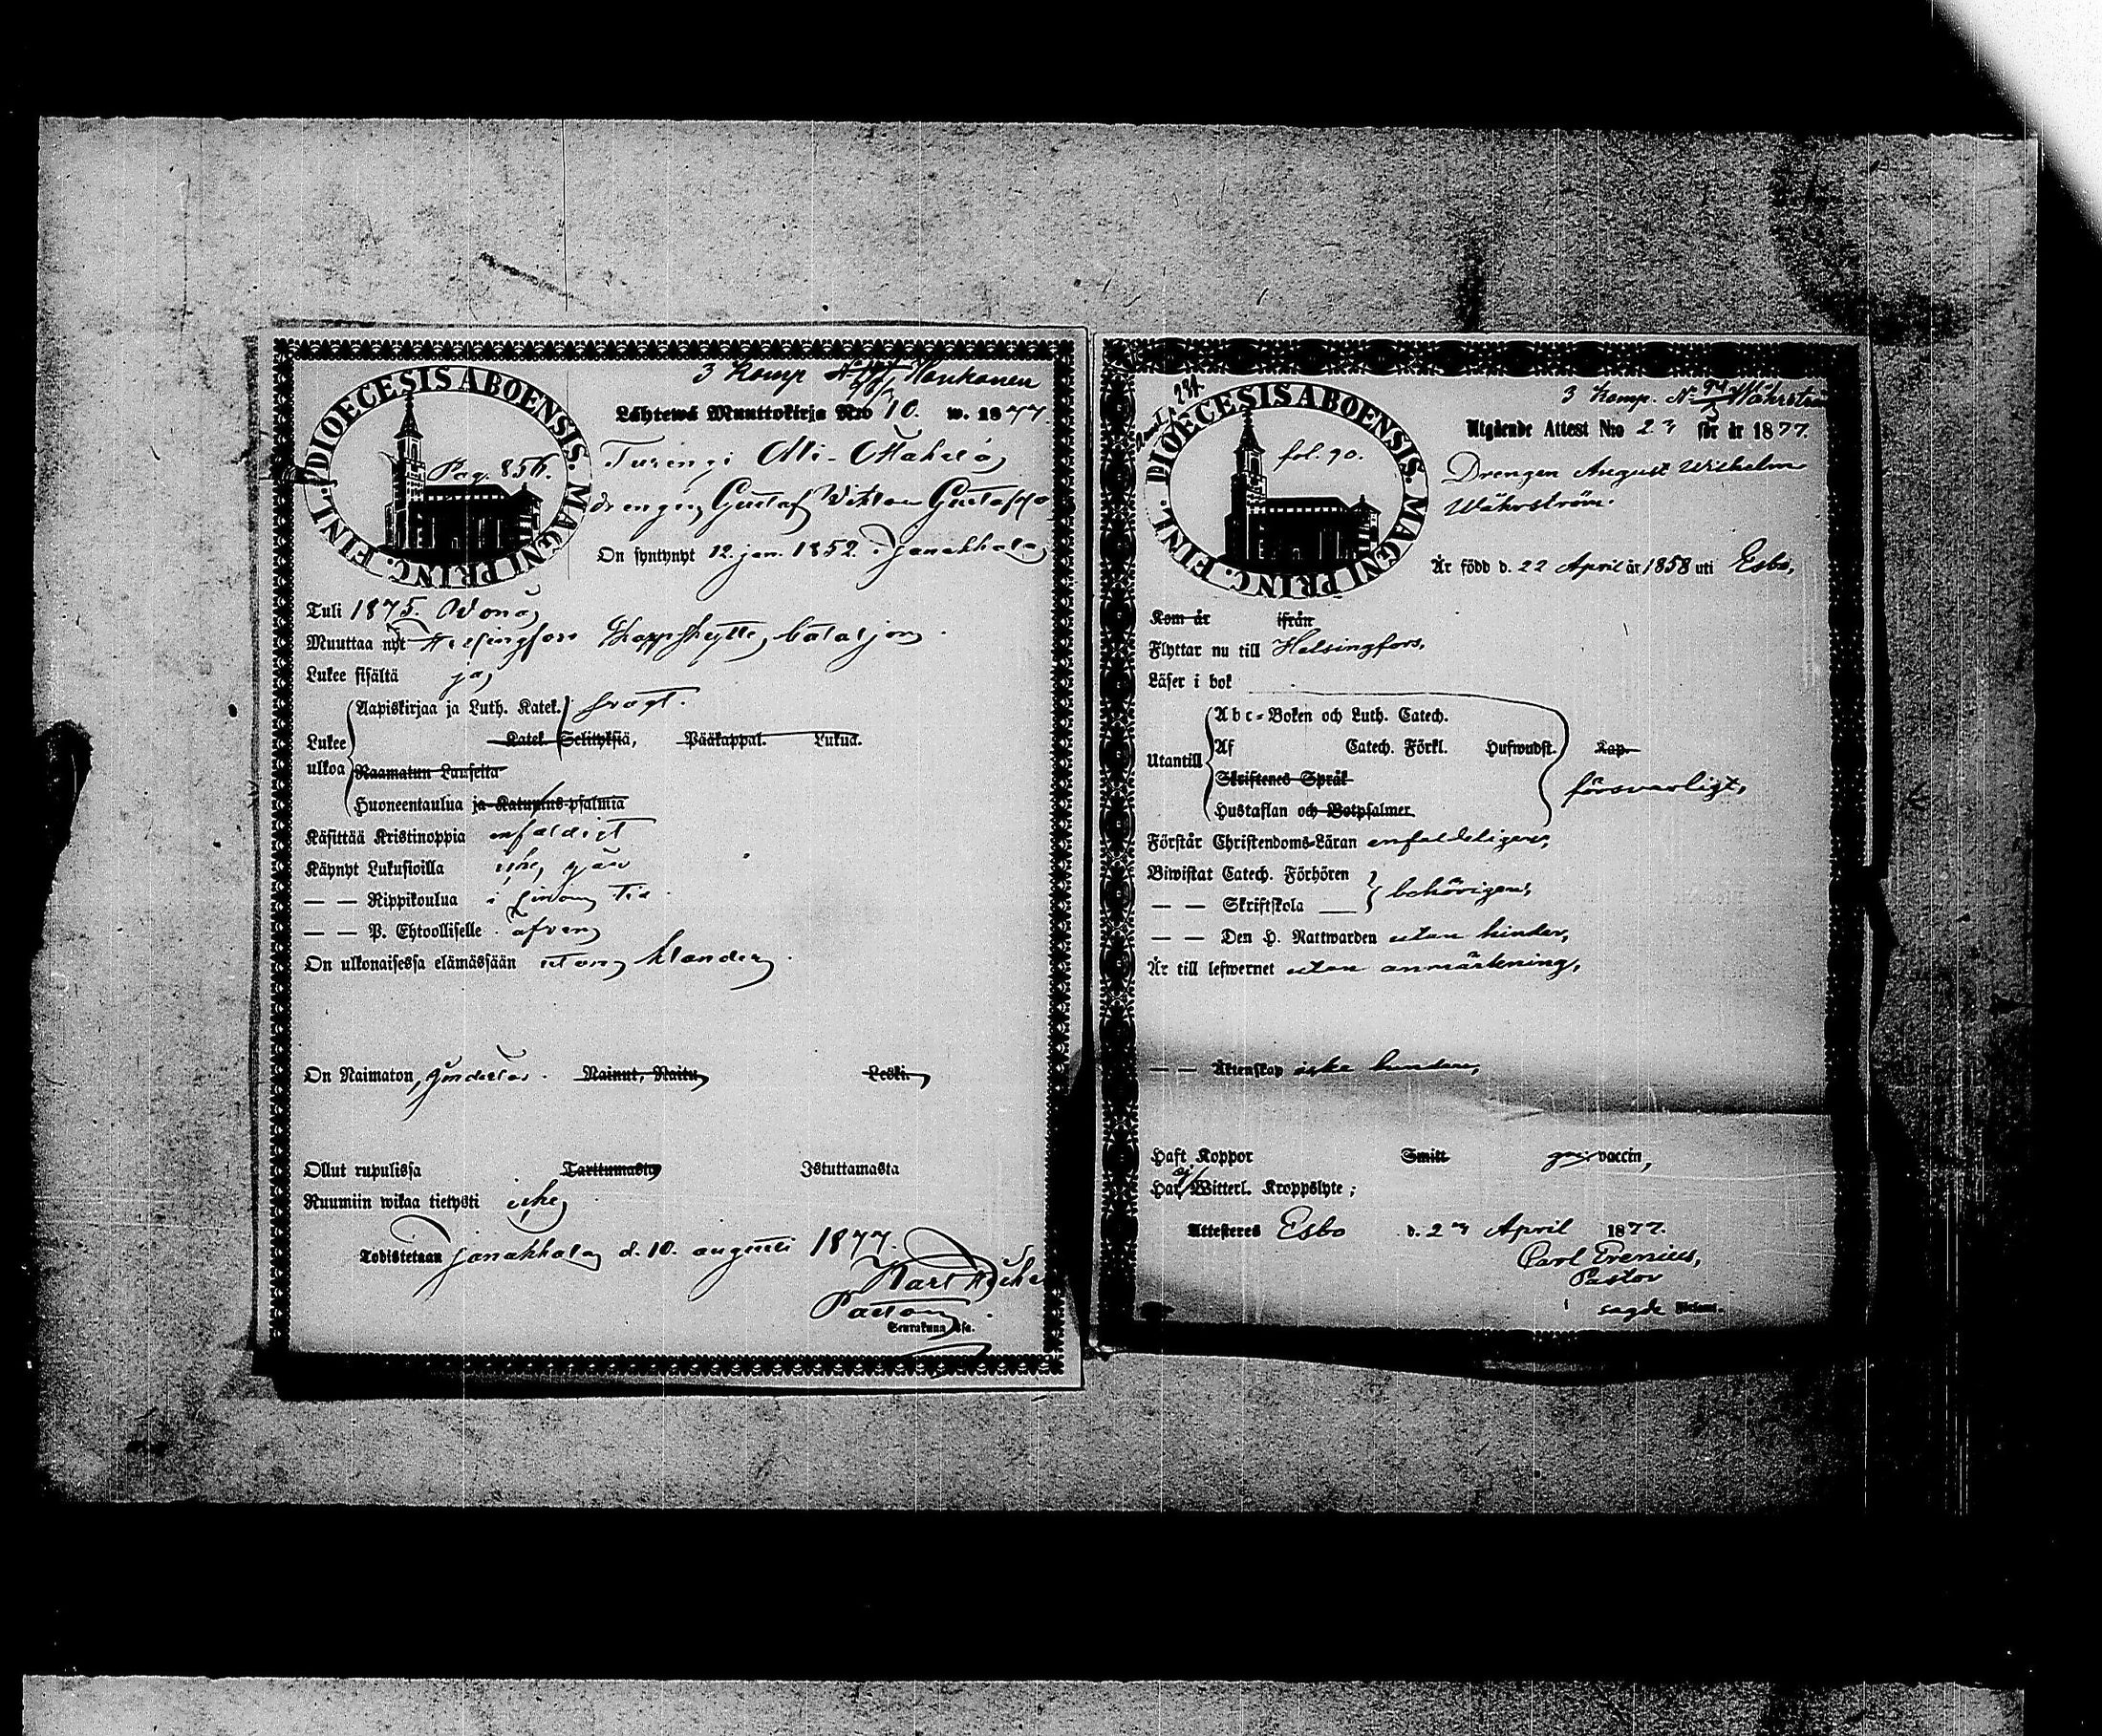 3 Komp N Honkonen
DIOECESIS ABOENSIS. MAGNI PRINC. FINL.
Lähtewä Muuttokirja N:o 10. w. 1877.
Pag. 856.
Turengi Ali-Mäkelä
drengen Gustaf Viktor
On syntynyt 12. jan. 1852. i Janakkala
Tuli 1875.
Muuttaa nyt Helsingfors Skarpskytte bataljon.
Lukee sisältä ja
Aapiskirjaa ja Luth. Katek. svagt.
Lukee Katek. Selityksiä, Pääkappal. Lukua.
ulkoa Raamatun Lauseita
Huoneentaulua ja Katumus-psalmia
Käsittää Kristinoppia enfaldigt
Käynyt Lukusioilla icke,
— — Rippikoulua i sinom tid.
— — P. Ehtoolliselle äfven
On ulkonaisessa elämässään utan klander.
On Naimaton, Nainut, Naitu, Leski.
Ollut rupulissa Tarttumasta Istuttamasta
Ruumiin wikaa tietysti icke
Todistetaan Janakkala d. 10. augusti 1877.
Karl
Pastor
Seurakunnassa.
3 Komp. N 94/3 Wåhrström
DIOECESIS ABOENSIS. MAGNI PRINC. FINL.
234.
Utgående Attest N:o 23 för år 1877.
fol. 90.
Drengen August Wilhelm
Wåhrström.
Är född d. 22 April år 1858 uti Esbo,
Kom år ifrån
Flyttar nu till Helsingfors,
Läser i bok
Abc-Boken och Luth. Catech.
Utantill Af Catech. Förkl. Hufwudst. Kap.
Skriftenes Språk
försvarligt,
Hustaflan och Botpsalmer.
Förstår Christendoms-Läran enfaldeligen,
Biwistat Catech. Förhören
— — Skriftskola behörigen,
— — Den H. Nattwarden utan hinder,
Är till lefwernet utan anmärkning,
— — Äktenskap icke bunden,
Haft Koppor Smitt gnm vaccin,
Har ej Witterl. Kroppslyte;
Attesteres Esbo d. 23 April 1877.
Carl Brenius,
Pastor
i sagde Förſaml.